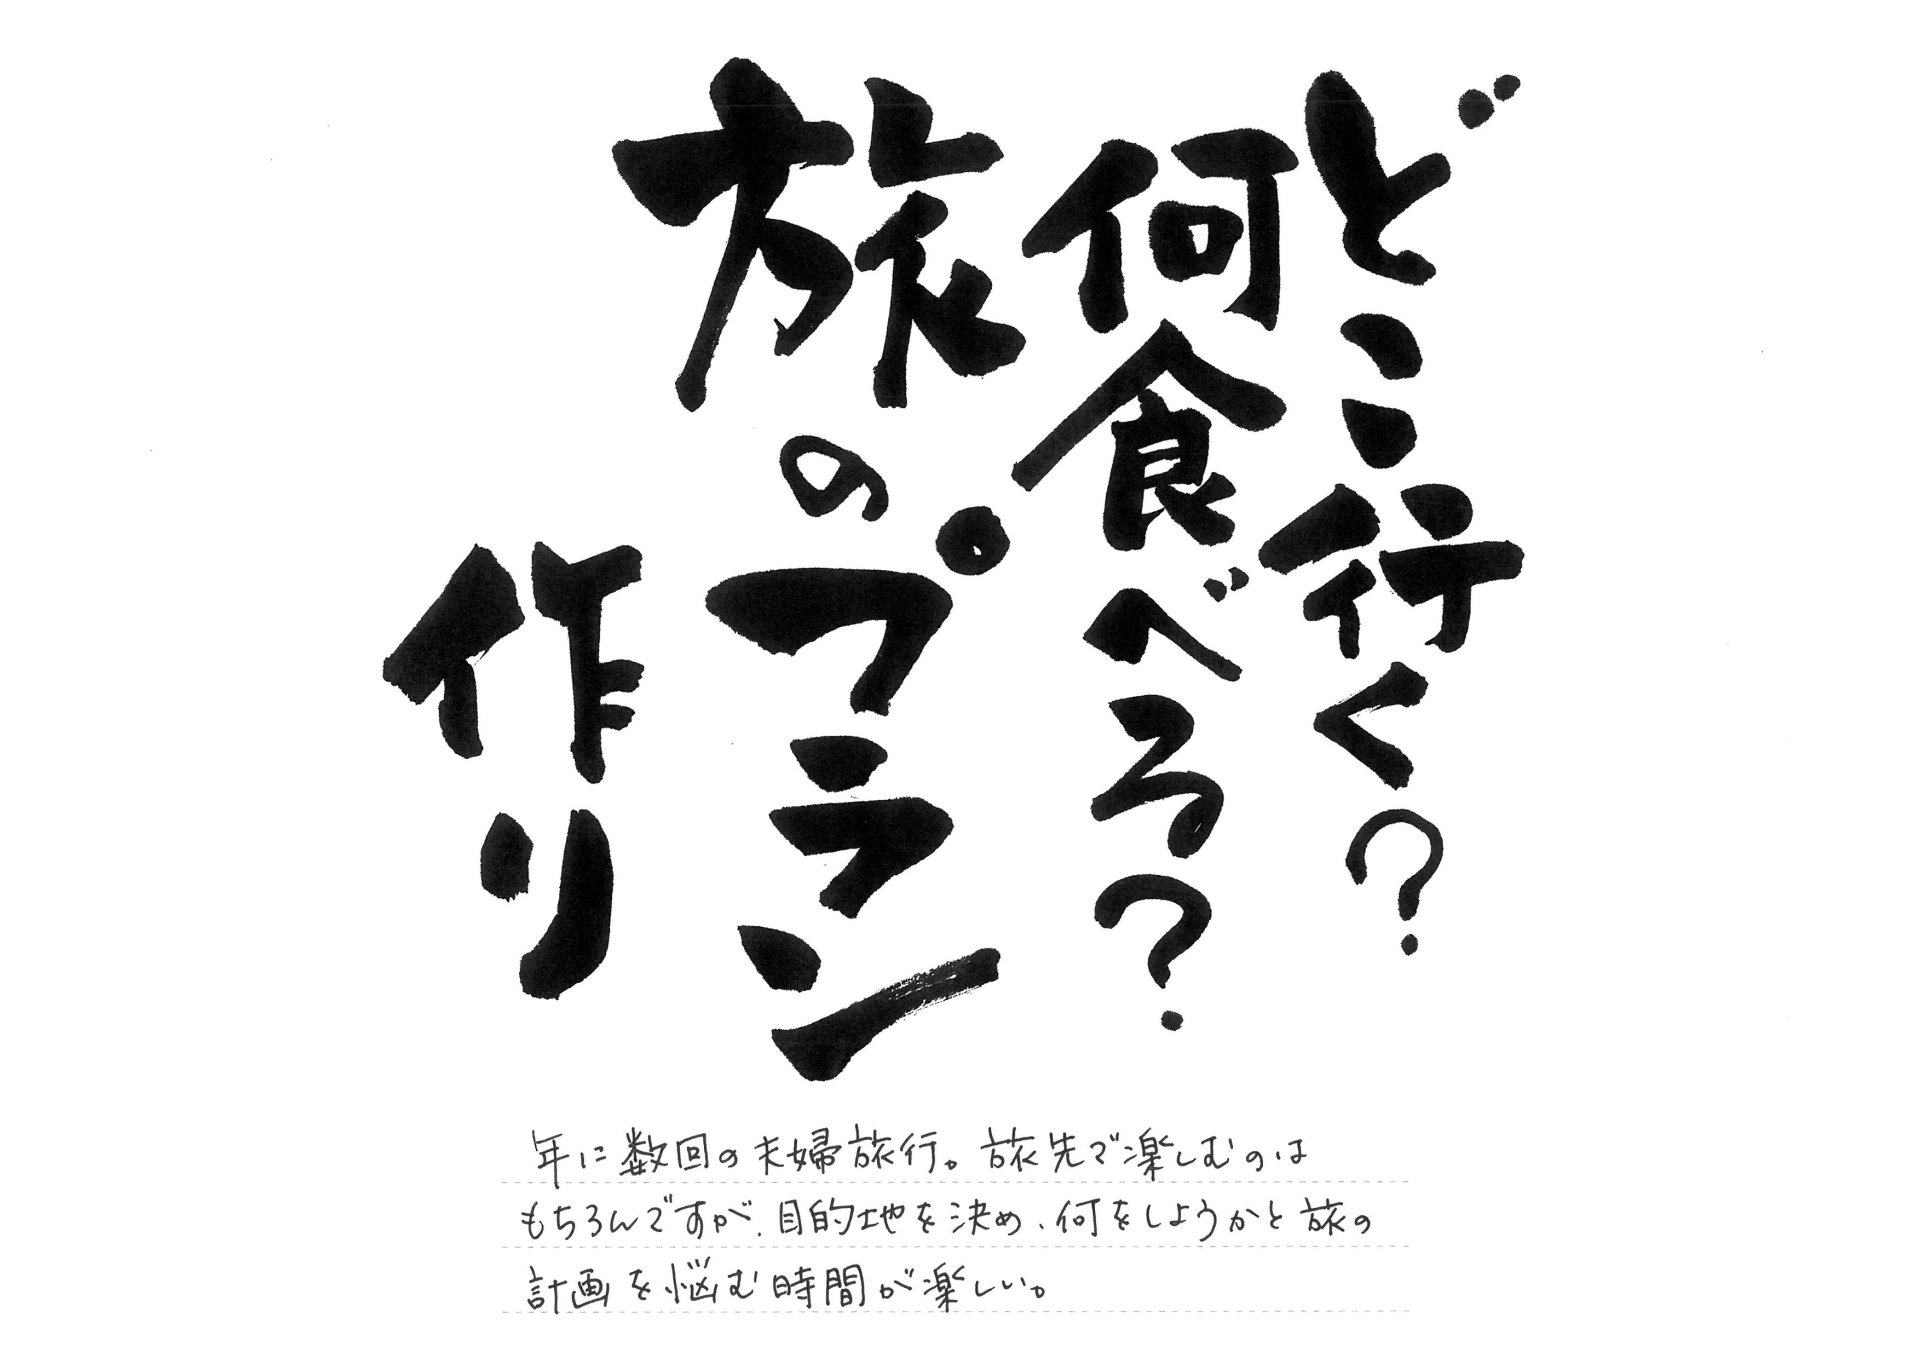 どこ行く?
何食べろ?
旅のプラン
作り
年に数回の夫婦旅行。旅先で楽しむのは
もちろんですが、目的地を決め、何をしようかと旅の
計画を悩む時間が楽しい。